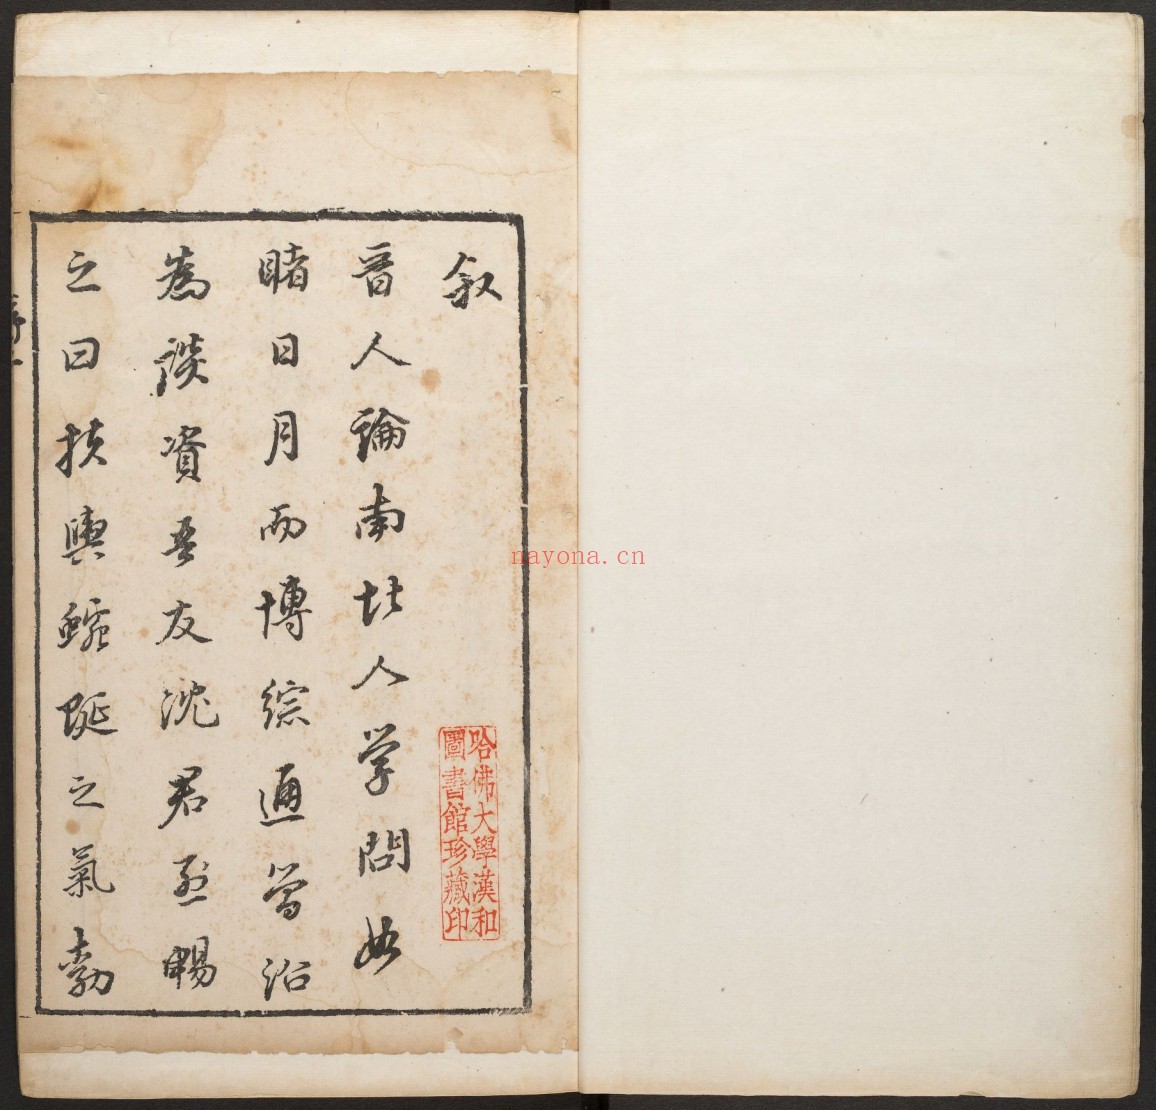 叙
晋人論南北人学問如
睹日月而博綜通
為談資吾友沈君 暢
之曰扶輿蜿蜒之氣勃
哈佛大學漢和
圖書館珍藏印
nayona.cn